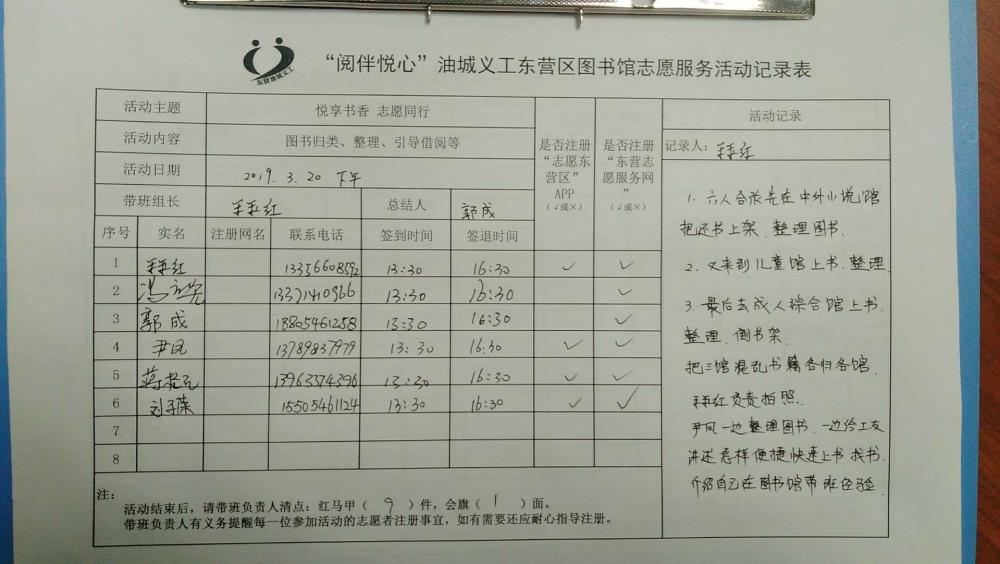 东营油城义工
“阅伴悦心”油城义工东营区图书馆志愿服务活动记录表
活动主题 悦享书香 志愿同行
活动内容 图书归类、整理、引导借阅等
活动日期 2019.3.20 下午
带班组长 总结人 郭成
序号 实名 注册网名 联系电话 签到时间 签退时间 是否注册“志愿东营区”APP（√或×） 是否注册“东营志愿服务网”（√或×）
1 13356608592 13:30 16:30 ✓ ✓
2 13371410966 13:30 16:30 ✓
3 郭成 18805461258 13:30 16:30 ✓
4 尹凤 13789837979 13:30 16:30 ✓ ✓
5 13963374396 13:30 16:30 ✓ ✓
6 15505461124 13:30 16:30 ✓ ✓
7
8
活动记录
记录人：
1. 六人合张先在中外小说馆
把还书上架、整理图书.
2. 又来到儿童馆上书.整理
3. 最后去成人综合馆上书
整理、倒书架.
把三馆混乱书籍各归各馆.
负责拍照.
尹凤一边整理图书.一边给工友
讲述怎样便捷快速上书找书.
介绍自己在图书馆带班经验.
注：
活动结束后，请带班负责人清点：红马甲（ 9 ）件，会旗（ 1 ）面。
带班负责人有义务提醒每一位参加活动的志愿者注册事宜，如有需要还应耐心指导注册。